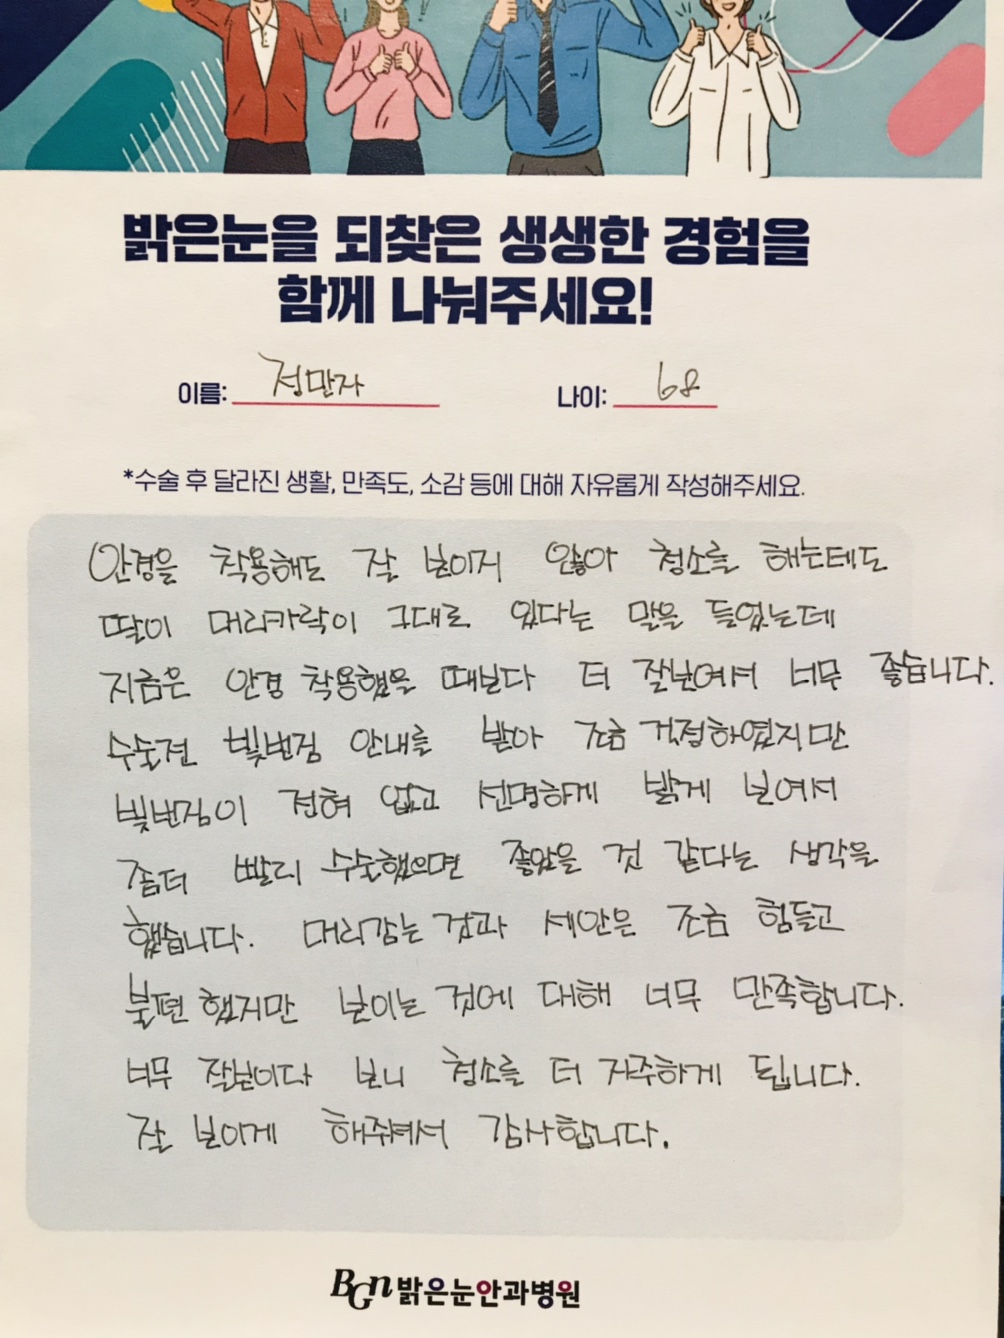 밝은눈을 되찾은 생생한 경험을
함께 나눠주세요!
이름: 정만자 나이: 68
*수술 후 달라진 생활, 만족도, 소감 등에 대해 자유롭게 작성해주세요.
안경을 착용해도 잘 보이지 않아 청소를 해는테도
딸이 머리카락이 그대로 있다는 말을 들었는데
지금은 안경 착용했을 때보다 더 잘보여져 너무 좋습니다.
수술전 빛번짐 안내를 받아 조금 걱정하였지만
빛번짐이 전혀 없고 선명하게 밝게 보여서
좀더 빨리 수술했으면 좋았을 것 같다는 생각을
했습니다. 머리감는 것과 세안은 조금 힘들고
불편 했지만 보이는 것에 대해 너무 만족합니다.
너무 잘보이다 보니 청소를 더 자주하게 됩니다.
잘 보이게 해줘서 감사합니다.
BGn밝은눈안과병원